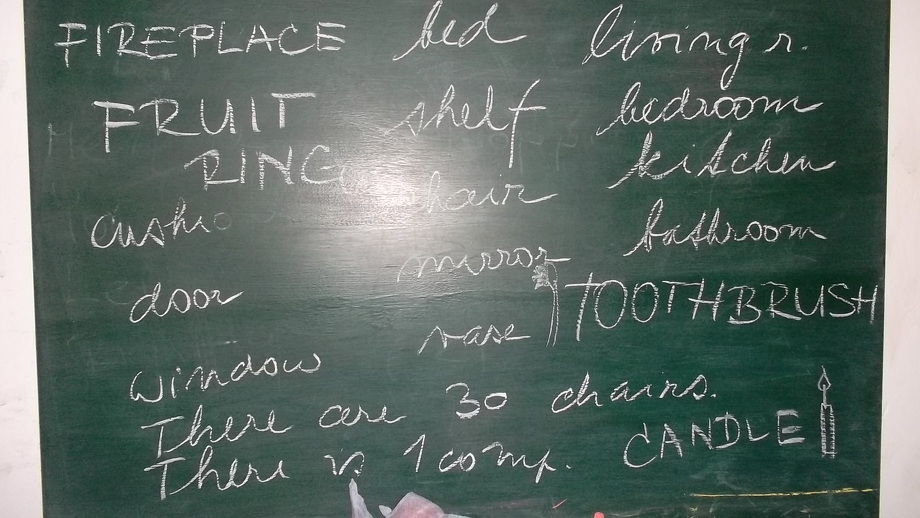 FIREPLACE bed living r.
FRUIT shelf bedroom
RING chair kitchen
cushio mirror bathroom
door TOOTHBRUSH
window vase
There are 30 chairs.
There is 1 comp. CANDLE